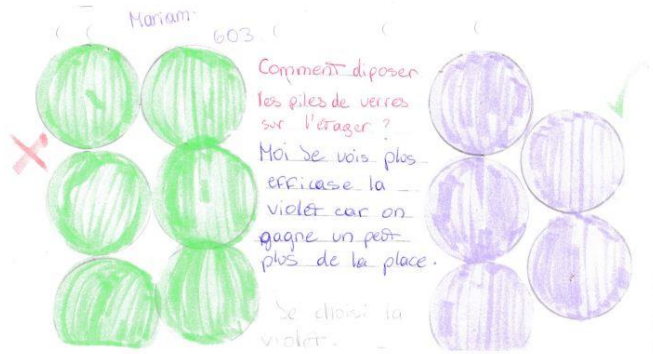 Mariam.
603
Comment diposer
les piles de verres
sur l'étager ?
Moi Je vois plus
efficase la
violet car on
gagne un peut
plus de la place.
Je choisi la
violet.